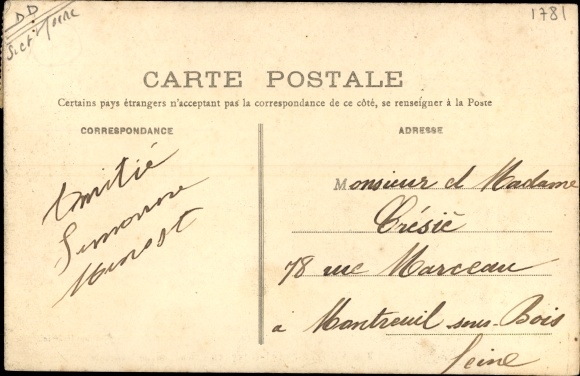 DD
S. et Loire
1781
CARTE POSTALE
Certains pays étrangers n'acceptant pas la correspondance de ce côté, se renseigner à la Poste
CORRESPONDANCE
Amitié
Simonne
ADRESSE
Monsieur et Madame
Trésié
78 rue Marceau
a Montreuil sous-Bois
Seine